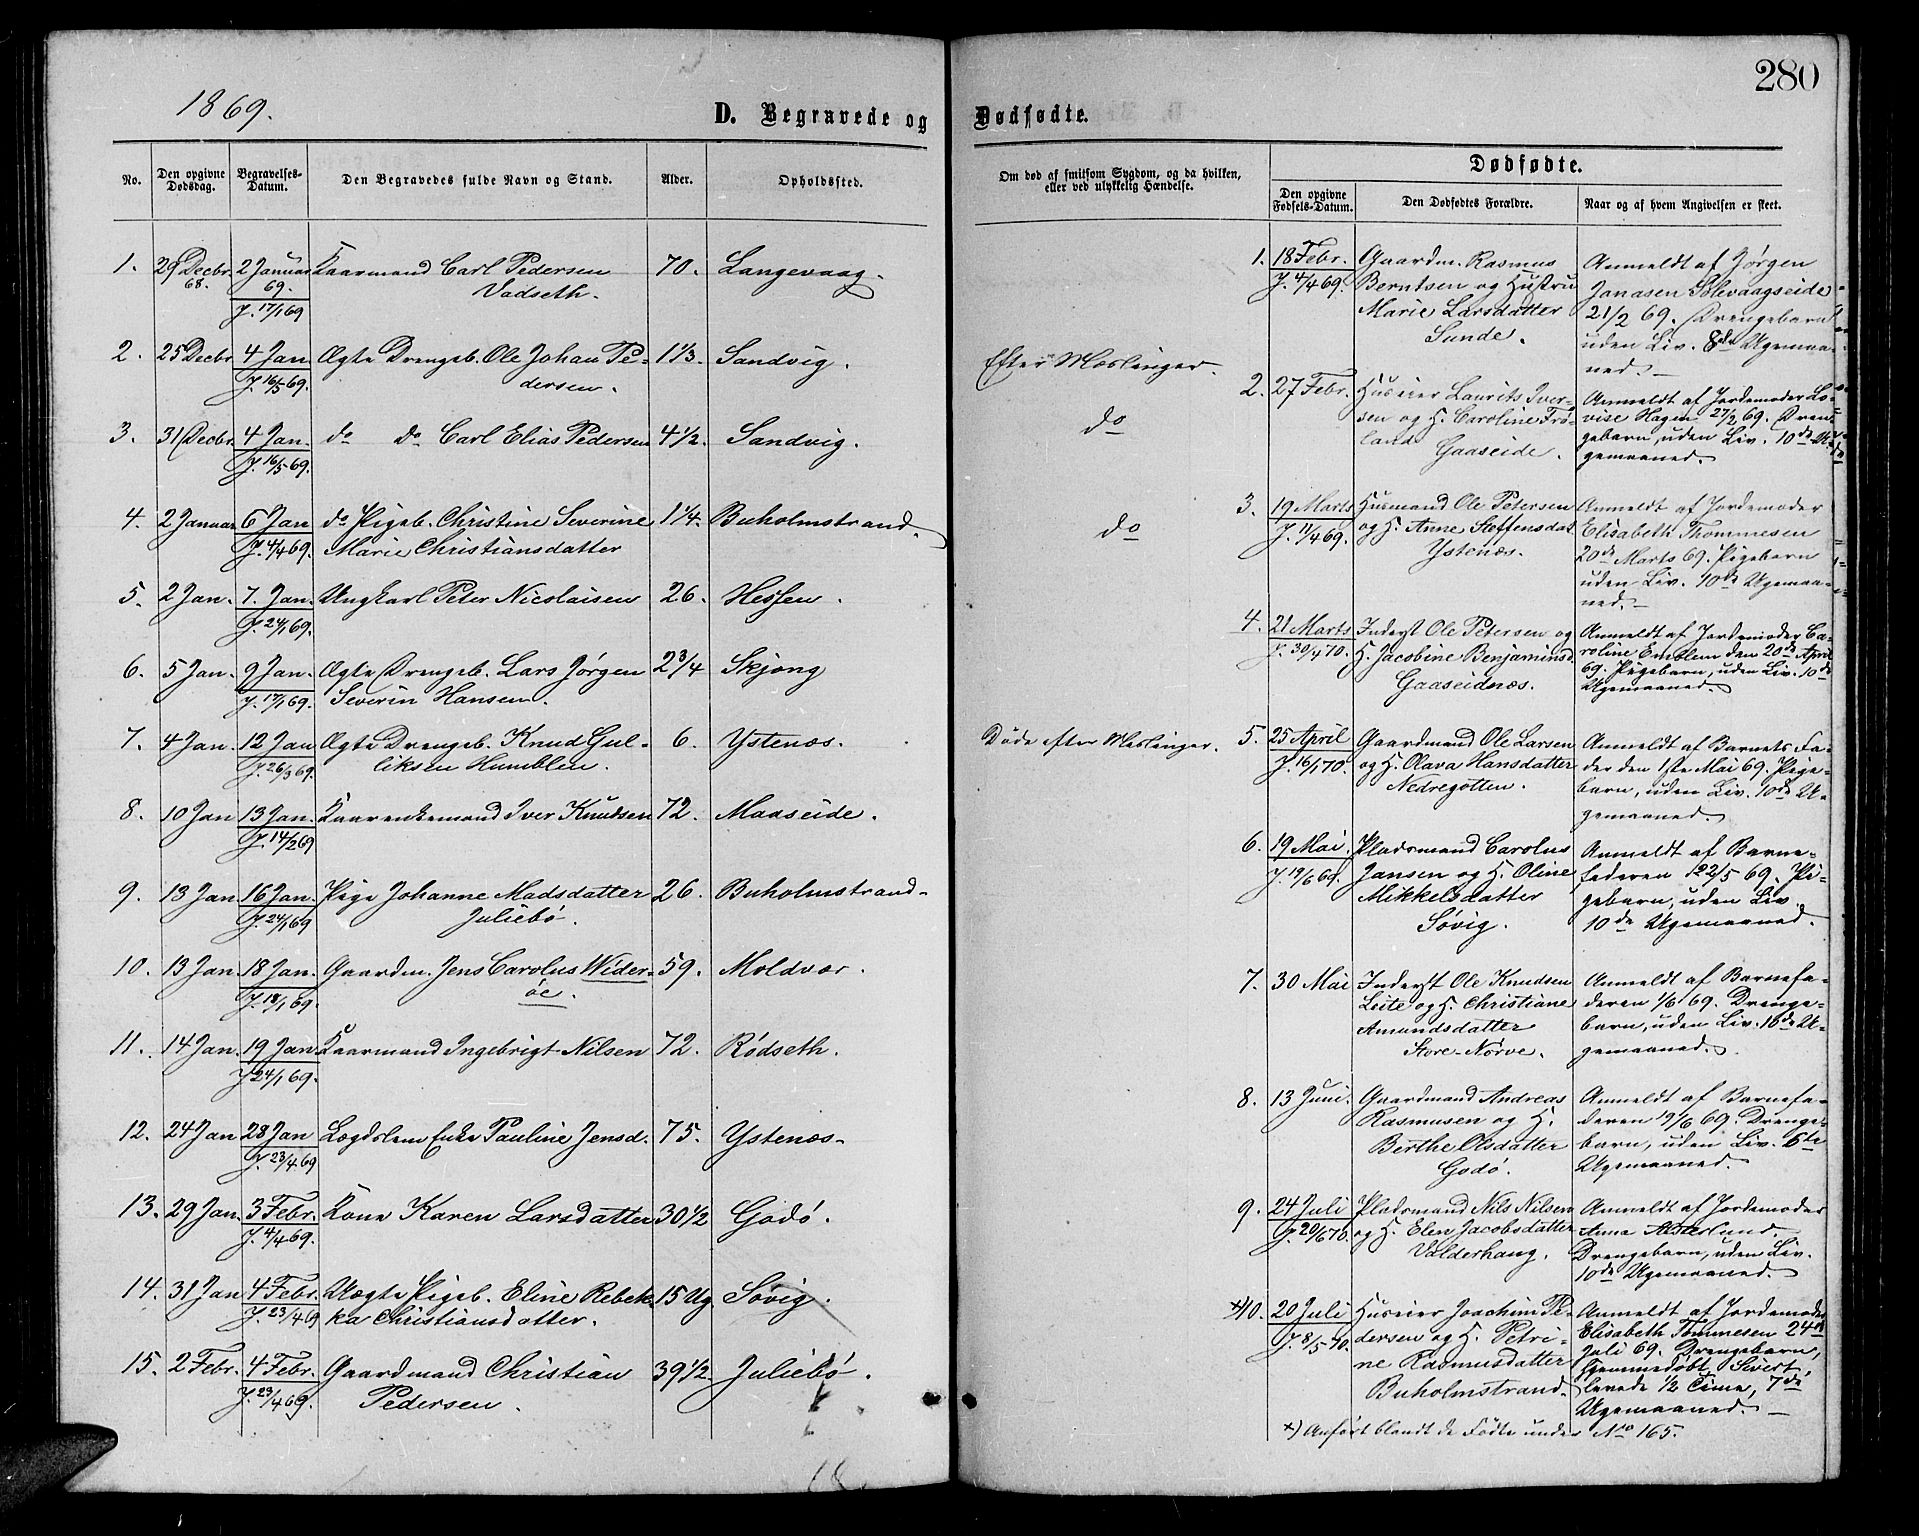 280
1869.
D. Begravede og Dødfødte.
No.
Den opgivne Dødsdag.
Begravelses-Datum.
Den Begravedes fulde Navn og Stand.
Alder.
Opholdssted.
Om død af smitsom Sygdom, og da hvilken, eller ved ulykkelig Hændelse.
Dødfødte.
Den opgivne Fødsels-Datum.
Den Dødfødtes Forældre.
Naar og af hvem Angivelsen er skeet.
1. 29 Decbr. 2 Januar Kaarmand Carl Pedersen 70. Langevaag.
68. 69. Vadseth.
J. 17/1 69
2. 25 Decbr 4 Jan Ægte Drengeb. Ole Johan Pe- 1 1/3. Sandvig. Efter Mæslinger.
J. 16/5 69. dersen.
3. 31 Decbr. 4 Jan. do do Carl Elias Pedersen 4 1/2. Sandvig. do
J. 16/5 69.
4. 2 Januar 6 Jan do Pigeb. Christine Severine 1 1/4. Buholmstrand. do
J. 4/4 69. Marie Christiansdatter
5. 2 Jan. 7. Jan. Ungkarl Peter Nicolaisen 26. Hessen.
J. 24/1 69.
6. 5 Jan. 9 Jan. Ægte Drengeb. Lars Jørgen 2 3/4 Skjong
J. 17/1 69. Severin Hansen.
7. 4 Jan. 12 Jan Ægte Drengeb. Knud Gul- 6. Ystenæs. Døde efter Meslinger.
J. 26/3 69. liksen Humblen.
8. 10 Jan 13 Jan. Kaarenkemand Iver Knudsen 72. Maaseide.
J. 14/2 69
9. 13 Jan 16 Jan. Pige Johanne Madsdatter 26. Buholmstrand-
J. 24/1 69 Juliebø.
10. 13 Jan. 18 Jan. Gaardm. Jens Carolus Wider- 59. Moldvær.
J. 18/1 69. øe.
11. 14 Jan. 19 Jan Kaarmand Ingebrigt Nilsen 72. Rødseth.
J. 24/1 69.
12. 24 Jan 28 Jan Lægdslem Enke Pauline Jensd. 75. Ystenæs-
J. 23/4 69
13. 29 Jan. 3 Febr. Kone Karen Larsdatter 30 1/2 Godø.
J. 4/4 69.
14. 31 Jan 4 Febr. Uægte Pigeb. Eline Rebek- 15 Ug. Søvig.
J. 23/4 69 ka Christiansdatter.
15. 2 Febr. 4 Febr. Gaardmand Christian 39 1/2. Juliebø.
J. 23/4 69. Pedersen.
1. 18 Febr. Gaardm. Rasmus Anmeldt af Jørgen
J. 4/4 69. Berntsen og Hustru Jonasen Blevaagseide
Marie Larsdatter 21/2 69. Drengebarn
Sunde. uden Liv. 8de Ugemaa-
ned.
2. 27 Febr. Huseier Laurits Iver- Anmeldt af Jordemoder Lo-
sen og H. Caroline Frø- vise Hagen 27/2 69. Dren-
land gebarn, uden Liv. 10de U-
Gaaseide. gemaaned.
3. 19 Marts Husmand Ole Petersen Anmeldt af Jordemoder
J. 11/4 69. og H. Anne Steffensdat Elisabeth Thommesen
Ystenæs. 20de Marts 69. Pigebarn
uden Liv. 10de Ugemaa-
ned.
4. 21 Marts Inderst Ole Petersen og Anmeldt af Jordemoder Ca-
J. 30/4 70. H. Jacobine Benjaminsd. roline Emblem den 20de April
Gaaseidnæs. 69. Pigebarn, uden Liv. 10de
Ugemaaned.
5. 25 April Gaardmand Ole Larsen Anmeldt af Barnets Fa-
J. 16/1 70. og H. Olava Hansdatter der den 1ste Mai 69. Pige-
Nedregotten. barn, uden Liv. 10de U-
gemaaned.
6. 19 Mai. Pladsmand Carolus Anmeldt af Barne-
J. 19/6 69. Jansen og H. Oline faderen 22/5 69. Pi-
Mikkelsdatter gebarn, uden Liv.
Søvig. 10de Ugemaaned.
7. 30 Mai Inderst Ole Knudsen Anmeldt af Barnefa-
Leite og H. Christiane deren 1/6 69. Drenge-
Amundsdatter barn, uden Liv. 10de U-
Store-Nørve. gemaaned.
8. 13 Juni. Gaardmand Andreas Anmeldt af Barnefa-
Rasmusen og H. deren 19/6 69. Drenge-
Berthe Olsdatter barn, uden Liv. 6te
Godø. Ugemaaned.
9. 24 Juli Pladsmand Nils Nilsen Anmeldt af Jordemoder
J. 29/6 70. og H. Elen Jacobsdatter Anna Alsterlund.
Valderhaug. Drengebarn, uden Liv.
10de Ugemaaned.
*) 10. 20 Juli Huseier Joachim Pe- Anmeldt af Jordemoder
J. 8/5 70. dersen og H. Petri- Elisabeth Tommesen 24de
ne Rasmusdatter Juli 69. Drengebarn,
Buholmstrand. hjemmedøbt Sivert,
levede 1/2 Time, 7de
Ugemaaned.
*) Anført blandt de Fødte under No 165.